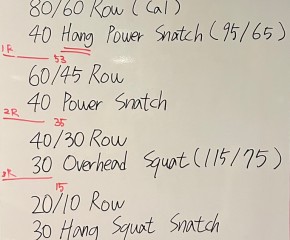 80/60 Row (Cal)
40 Hang Power Snatch (95/65)
1R 53
60/45 Row
40 Power Snatch
2R 35
40/30 Row
30 Overhead Squat (115/75)
3R 15
20/10 Row
30 Hang Squat Snatch